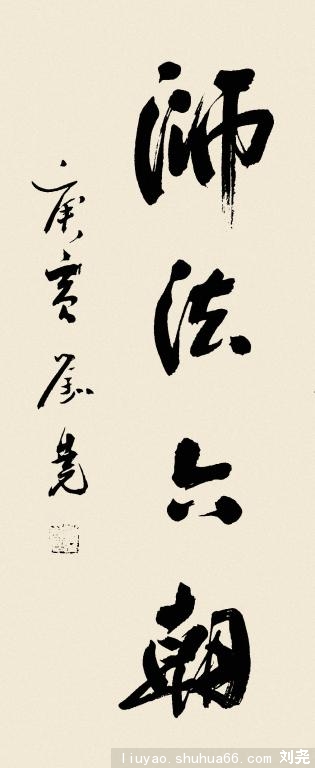 师法六朝
庚寅劉堯
liuyao.shuhua66.com 刘尧